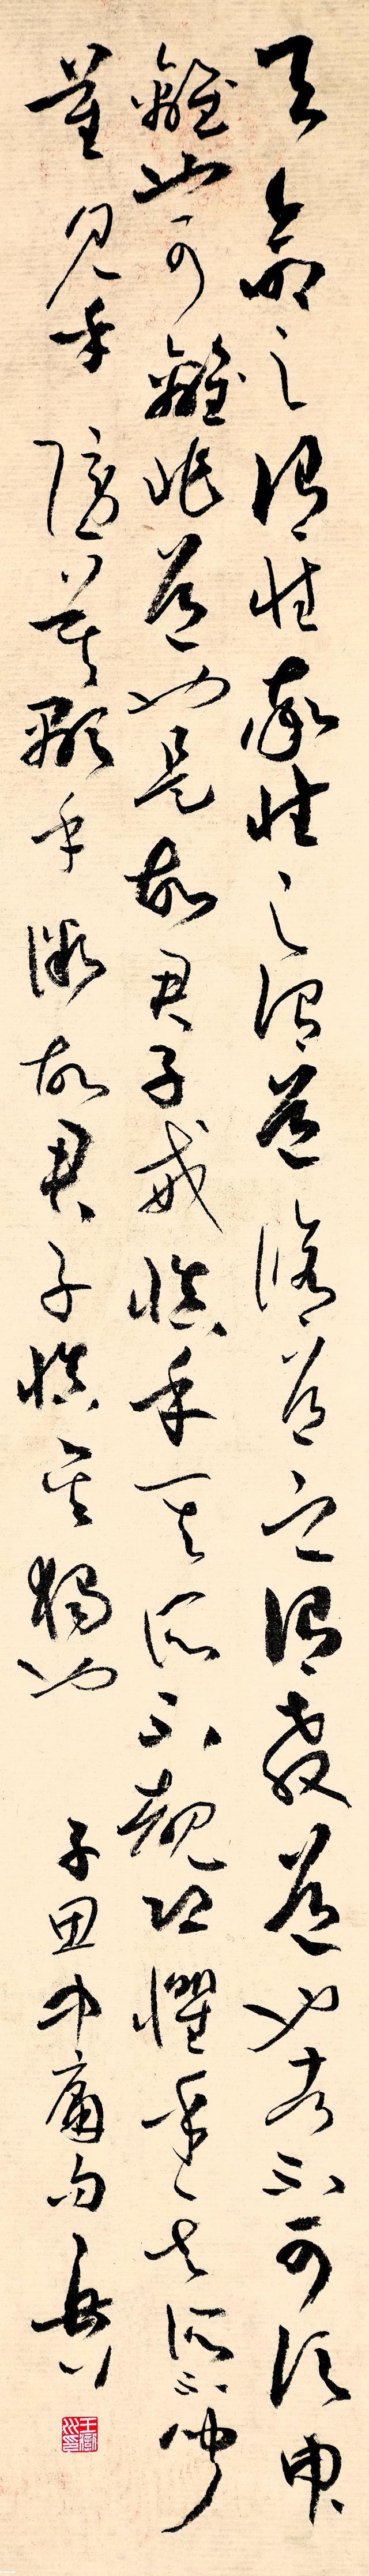 天命之謂性率性之謂道修道之謂教道也者不可須臾
離也可離非道也是故君子戒慎乎其所不覩恐懼乎其所不聞
莫見乎隱莫顯乎微故君子慎其獨也 子思中庸句